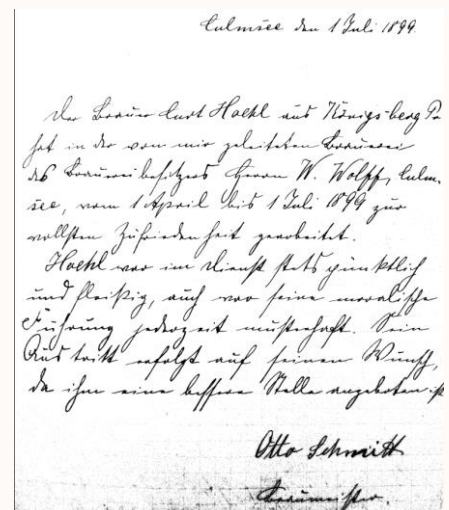 Culmsee den 1 Juli 1899.
Der Brauer Curt Hackl aus Königsberg Pr
hat in der von mir geleiteten Brauerei
des Brauereibesitzers Herrn W. Wolff, Culm-
see, vom 1 April bis 1 Juli 1899 zur
vollsten Zufriedenheit gearbeitet.
Hackl war im Dienst stets pünktlich
und fleißig, auch war seine moralische
Führung jederzeit musterhaft. Sein
Austritt erfolgt auf seinen Wunsch,
da ihm eine bessere Stelle angeboten ist
Otto Schmitt
Braumeister.